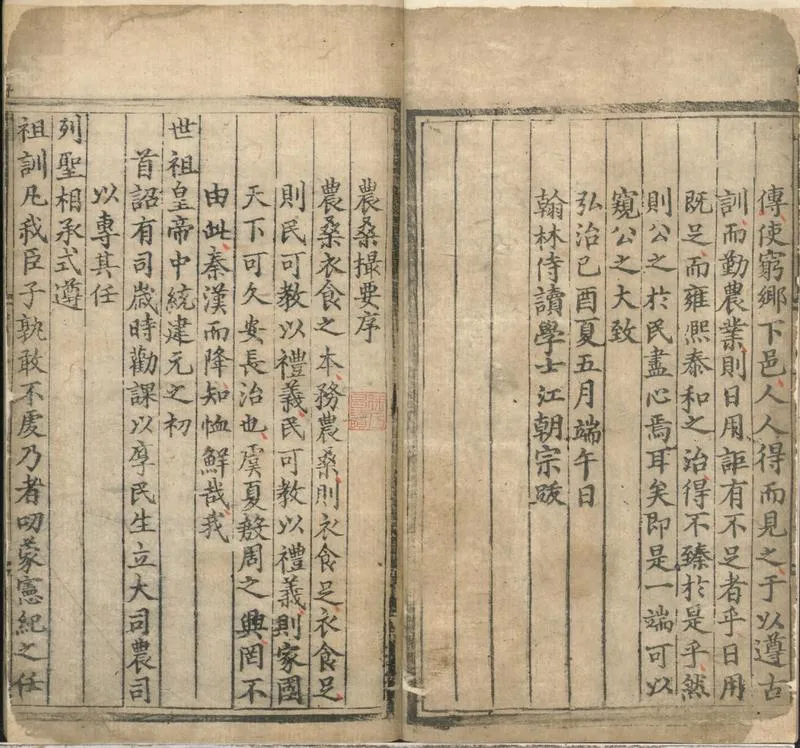 傳使窮鄉下邑人人得而見之于以遵古
訓而勤農業則日用詎有不足者乎日用
既足而雍熙泰和之治得不臻於是乎然
則公之於民盡心焉耳矣即是一端可以
窺公之大致
弘治己酉夏五月端午日
翰林侍讀學士江朝宗跋
農桑撮要序
農桑衣食之本務農桑則衣食足衣食足
則民可教以禮義民可教以禮義則家國
天下可久安長治也虞夏殷周之興罔不
由此秦漢而降知恤鮮哉我
世祖皇帝中統建元之初
首詔有司歲時勸課以厚民生立大司農司
以專其任
列聖相承式遵
祖訓凡我臣子孰敢不虔乃者叨蒙憲紀之任